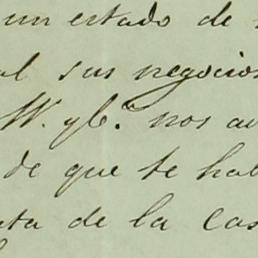 un estado de
al sus negocios
W. y Ca. nos av
de que te hab
ta de la cas